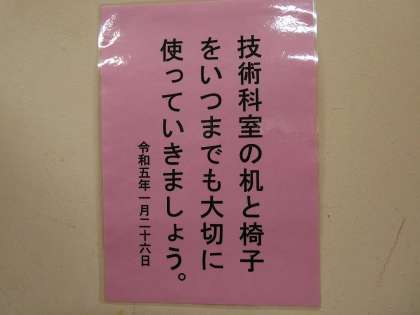 技術科室の机と椅子
をいつまでも大切に
使っていきましょう。
令和五年一月二十六日